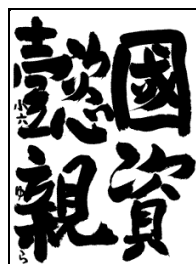 國資
懿親
小六 ゆら